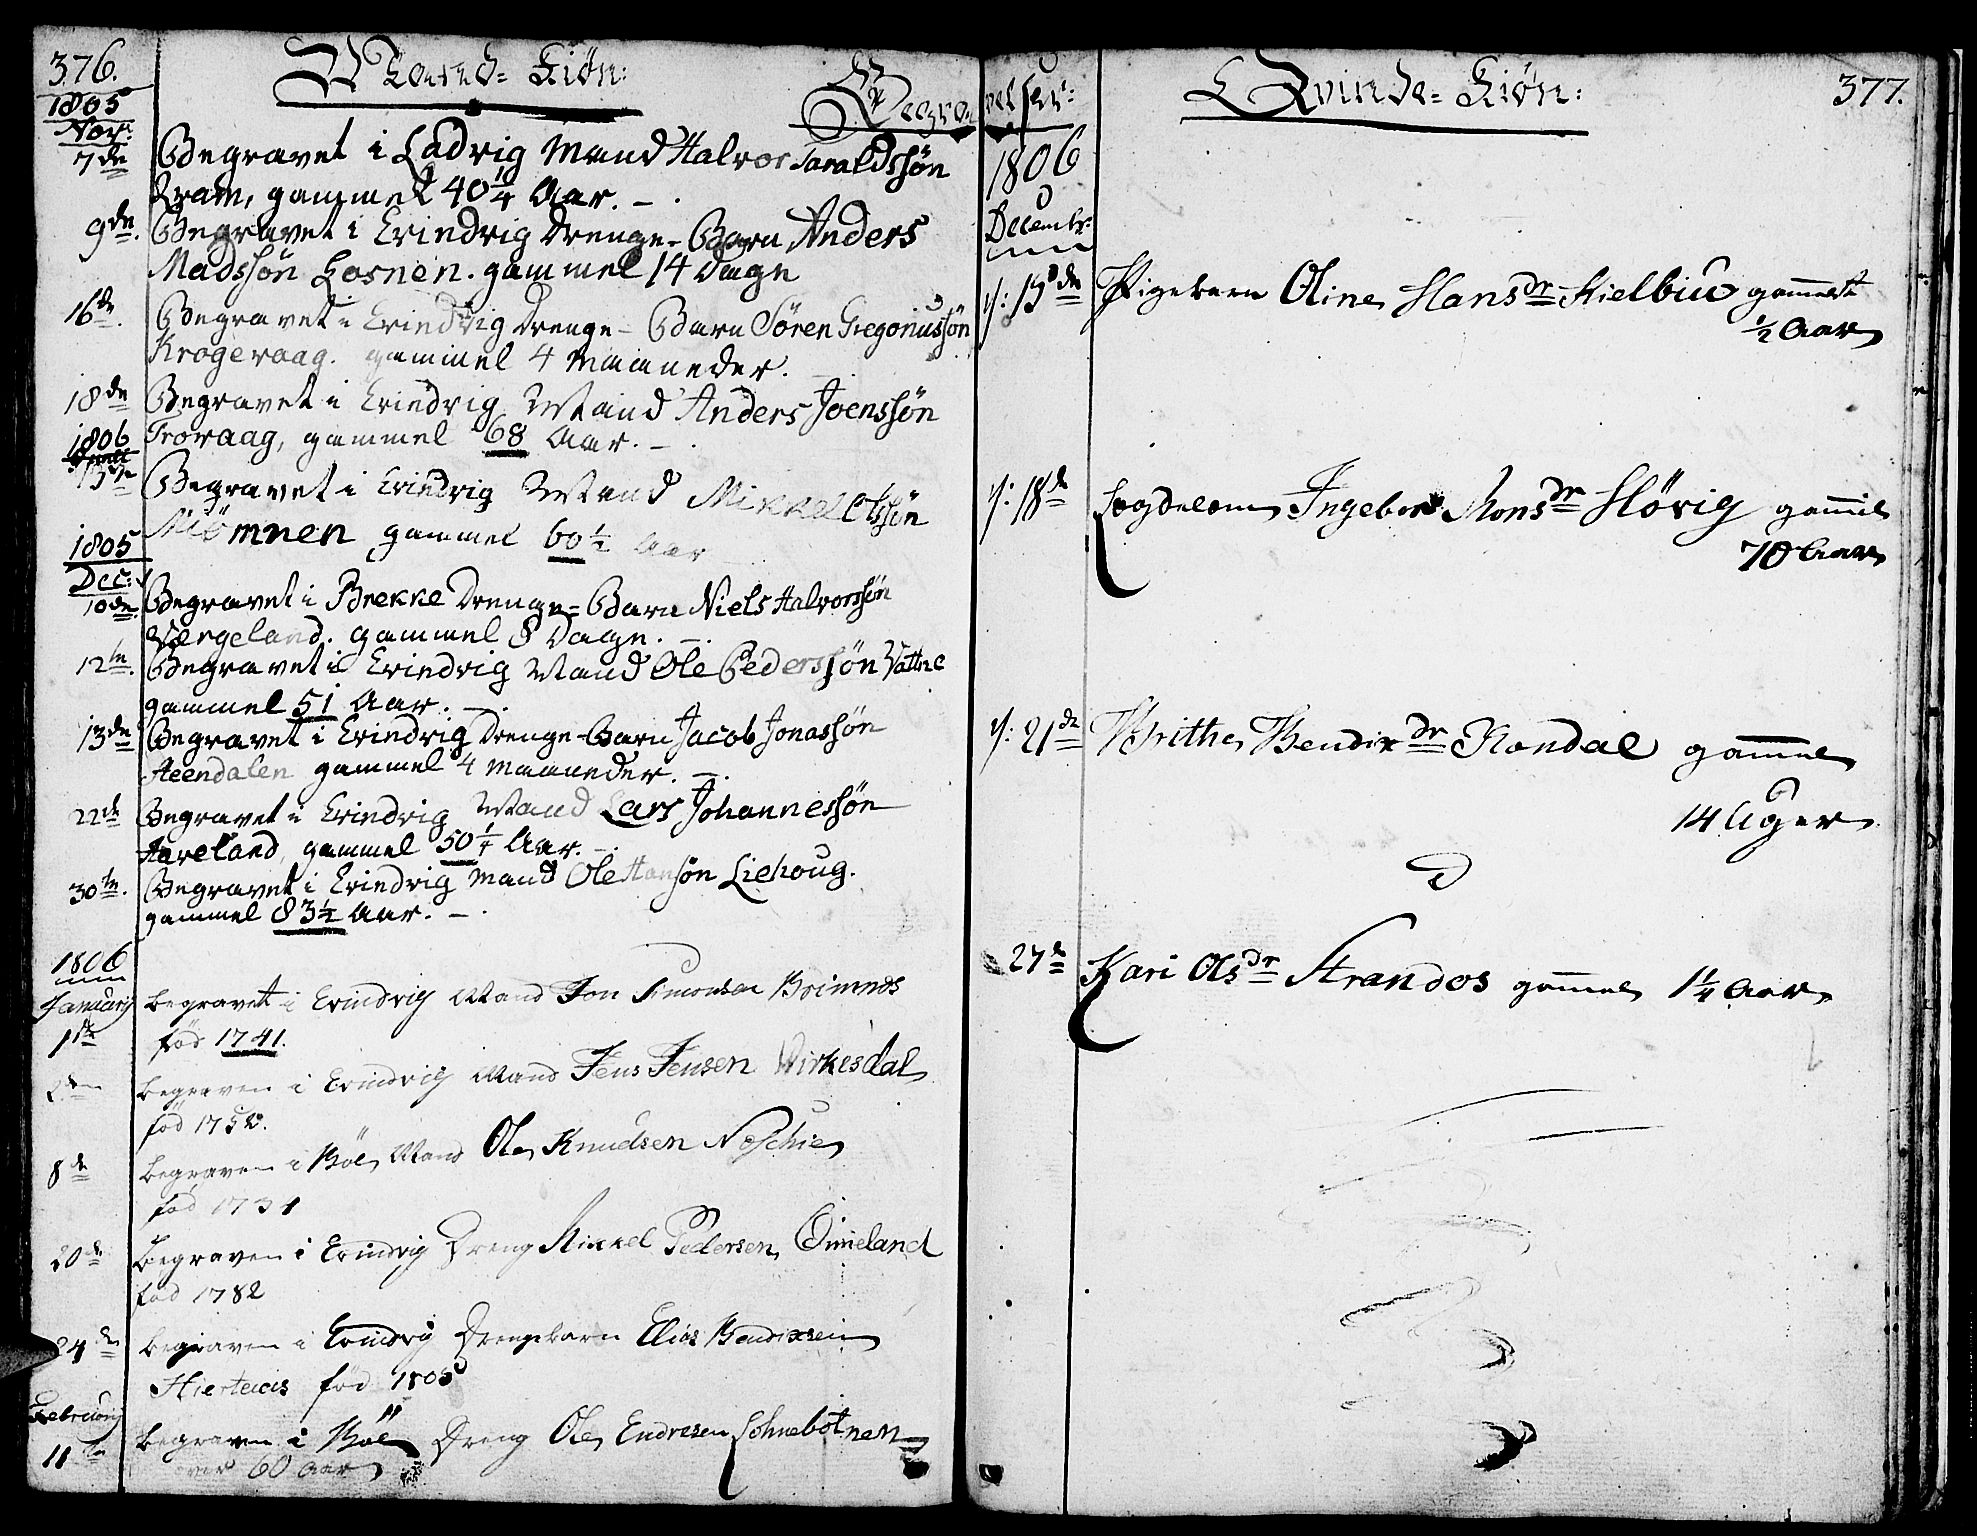 376.
Mand- Kiøn:
1805
Nov:
7de Begravet i Ladvig Mand Halvor Haraldssøn
Tram, gammel 40 1/4 Aar. –
9de. Begravet i Evindvig Drenge-Barn Anders
Madssøn Losnen. gammel 14 Dage
16de. Begravet i Evindvig Drenge-Barn Søren Gregoriussøn
Krogevaag. gammel 4 Maaneder.
18de Begravet i Evindvig Mand Anders Joenssøn
gammel 68 Aar. –
1806
13de Begravet i Evindvig Mand Mikkel Olssøn
Miømnen gammel 60 1/2 Aar
1805
Dec:
10de. Begravet i Brekke Drenge-Barn Niels Halvorssøn
Værgeland. gammel 8 Dage. –.
12te. Begravet i Evindvig Mand Ole Pederssøn Vattne
gammel 51 Aar. –.
13de Begravet i Evindvig Drenge-Barn Jacob Jonassøn
gammel 4 Maaneder. –.
22de Begravet i Evindvig Mand Lars Johannessøn
gammel 50 1/4 Aar. –.
30te. Begravet i Evindvig Mand Ole Hansøn Liehoug.
gammel 83 1/2 Aar. –.
1806
January
1ste begravet i Evindvig Mand Jon Simonsen Brimnes
fød 1741.
2den begraven i Evindvig Mand Jens Jensen Virkesdal
fød 175
8de begraven i Bøe Mand Ole Knudsen Noschie
fød 1734
20de begraven i Evindvig Dreng Mikkel Pedersen
fød 1782
24de begraven i Evindvig Drengebarn Elias Bendixsen
Hierteaas fød 1805
February
11te begraven i Bøe Dreng Ole Endresen
over 60 Aar
Qvinde- Kiøn:
377.
1806
Decembr:
13de Pigebarn Oline Hansdr Kielbiu gammel
1/2 Aar
18de Lægdelem Ingebor Monsdr Høvig gammel
70 Aar
21de Brithe Bendixdr Randal gammel
14 Uger
27de Kari Olsdr Strandos gammel 1 1/4 Aar